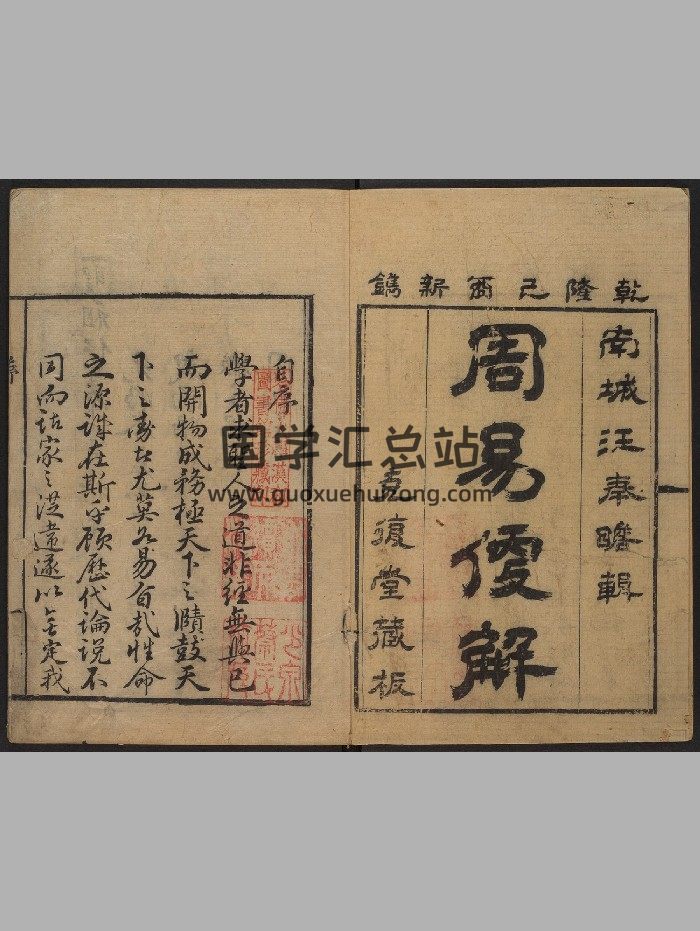 乾隆己酉新鐫
南城汪奉瞻輯
周易便解
復堂藏板
自序
學者求聖人之道非經無與已
而開物成務極天下之賾鼓天
下之動者尤莫若易旨哉性命
之源誰在斯乎顧歷代論說不
同而詁家之從違遂以無定我
国学汇总站
www.guoxuehuizong.com